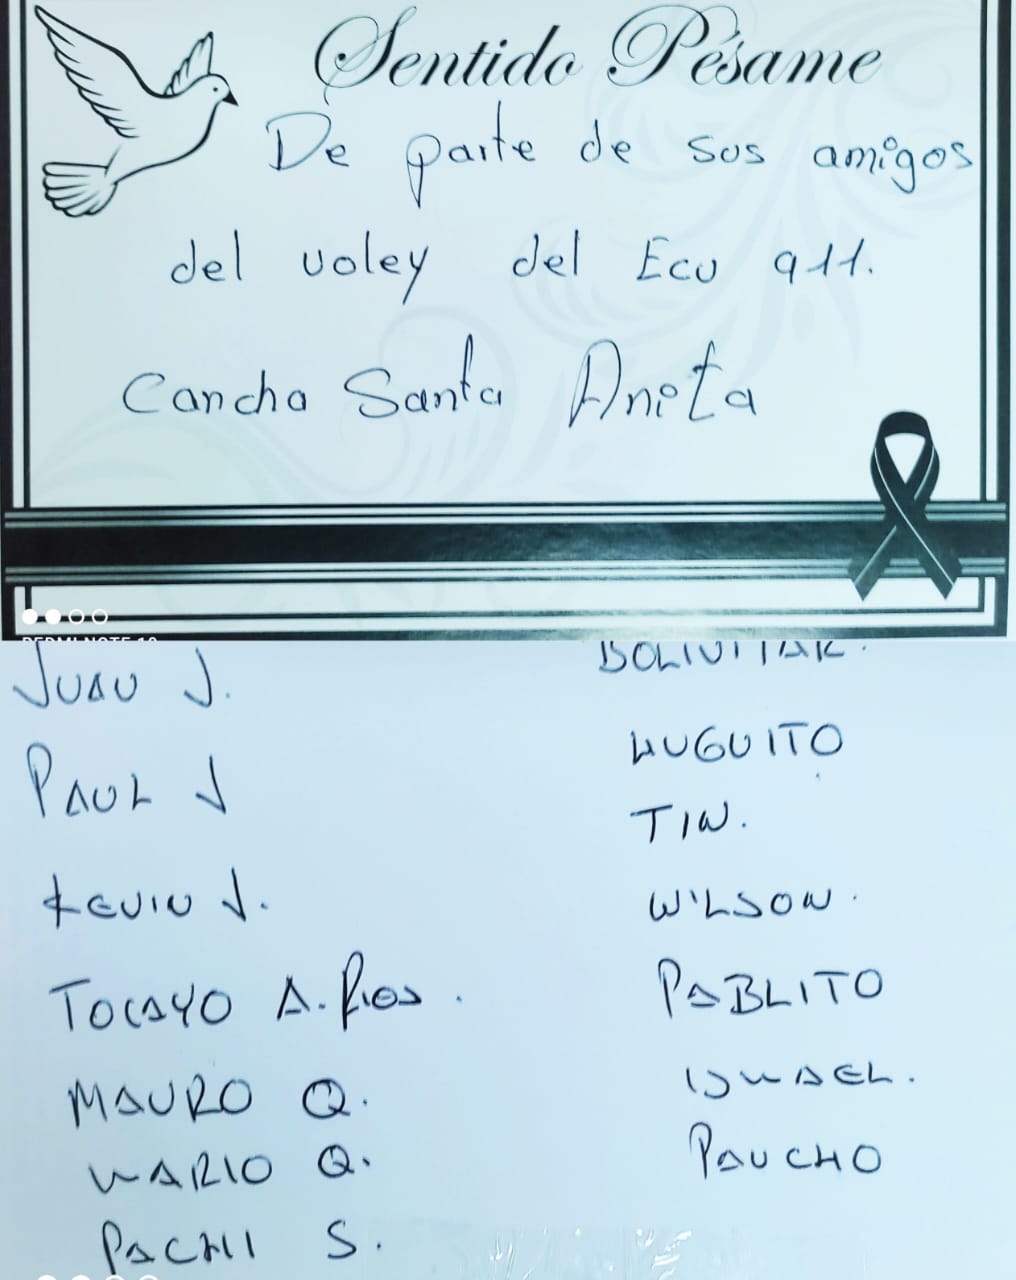 Sentido Pésame
De parte de sus amigos
del voley del Ecu 911.
Cancha Santa Anita
JUAN J.
PAUL J
KEVIN J.
TOCAYO A. Rios.
MAURO Q.
MARIO Q.
PACHI S.
HUGUITO
TIN.
WILSON.
PABLITO
ISMAEL.
PANCHO